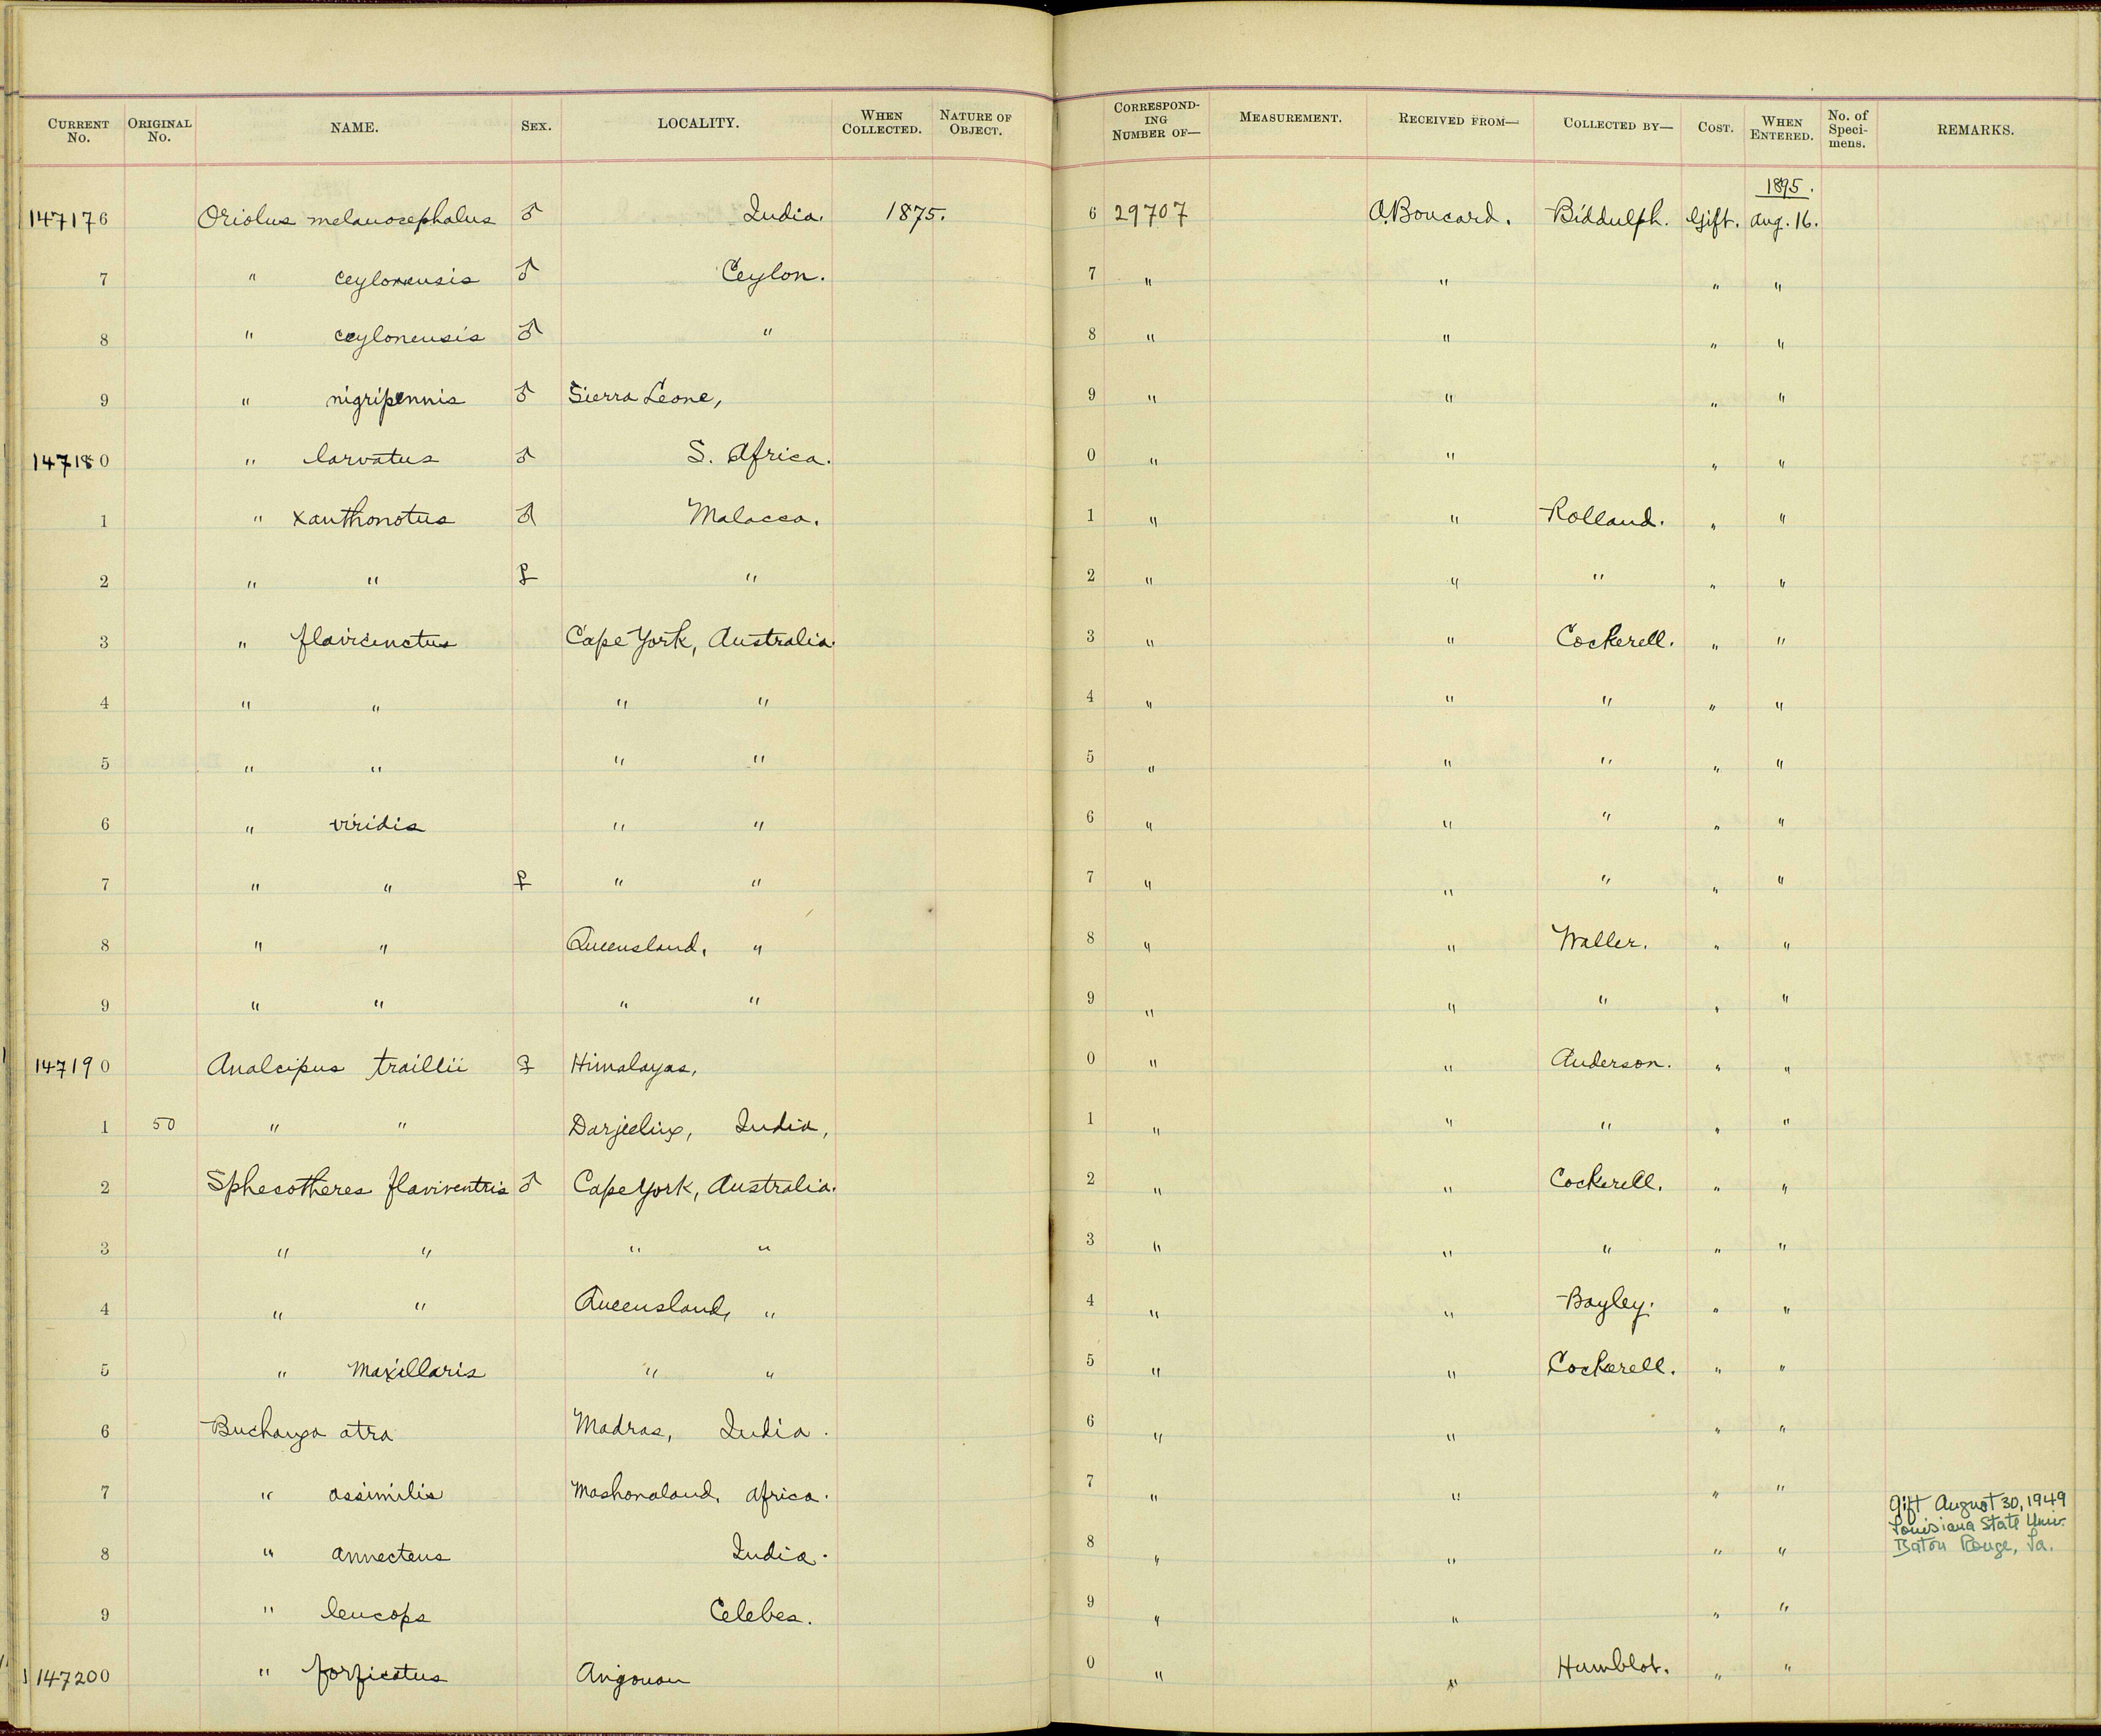 CURRENT No. ORIGINAL No. NAME. SEX. LOCALITY. WHEN COLLECTED. NATURE OF OBJECT. CORRESPOND-ING NUMBER OF— MEASUREMENT. RECEIVED FROM— COLLECTED BY— COST. WHEN ENTERED. No. of Speci-mens. REMARKS.
1895.
147176 Oriolus melanocephalus ♂ India. 1875. 6 29707 A. Boucard. Biddulph. Gift. Aug. 16.
7 " ceylonensis ♂ Ceylon. 7 " " " "
8 " ceylonensis ♂ " 8 " " " "
9 " nigripennis ♂ Sierra Leone, 9 " " " "
147180 " larvatus ♂ S. Africa. 0 " " " "
1 " xanthonotus ♂ Malacca. 1 " " Rolland. " "
2 " " ♀ " 2 " " " " "
3 " flavicinctus Cape York, Australia. 3 " " Cockerell. " "
4 " " " " 4 " " " " "
5 " " " " 5 " " " " "
6 " viridis " " 6 " " " " "
7 " " ♀ " " 7 " " " " "
8 " " Queensland, " 8 " " Waller. " "
9 " " " " 9 " " " " "
147190 Analcipus traillii ♀ Himalayas, 0 " " Anderson. " "
1 50 " " Darjeeling, India, 1 " " " " "
2 Sphecotheres flaviventris ♂ Cape York, Australia. 2 " " Cockerell. " "
3 " " " " 3 " " " " "
4 " " Queensland, " 4 " " Bayley. " "
5 " maxillaris " " 5 " " Cockerell. " "
6 Buchanga atra Madras, India. 6 " " " "
7 " assimilis Mashonaland, Africa. 7 " " " "
Gift August 30, 1949
Louisiana State Univ.
Baton Rouge, La.
8 " annectens India. 8 " " " "
9 " leucops Celebes. 9 " " " "
147200 " forficatus Anjouan 0 " " Humblot. " "